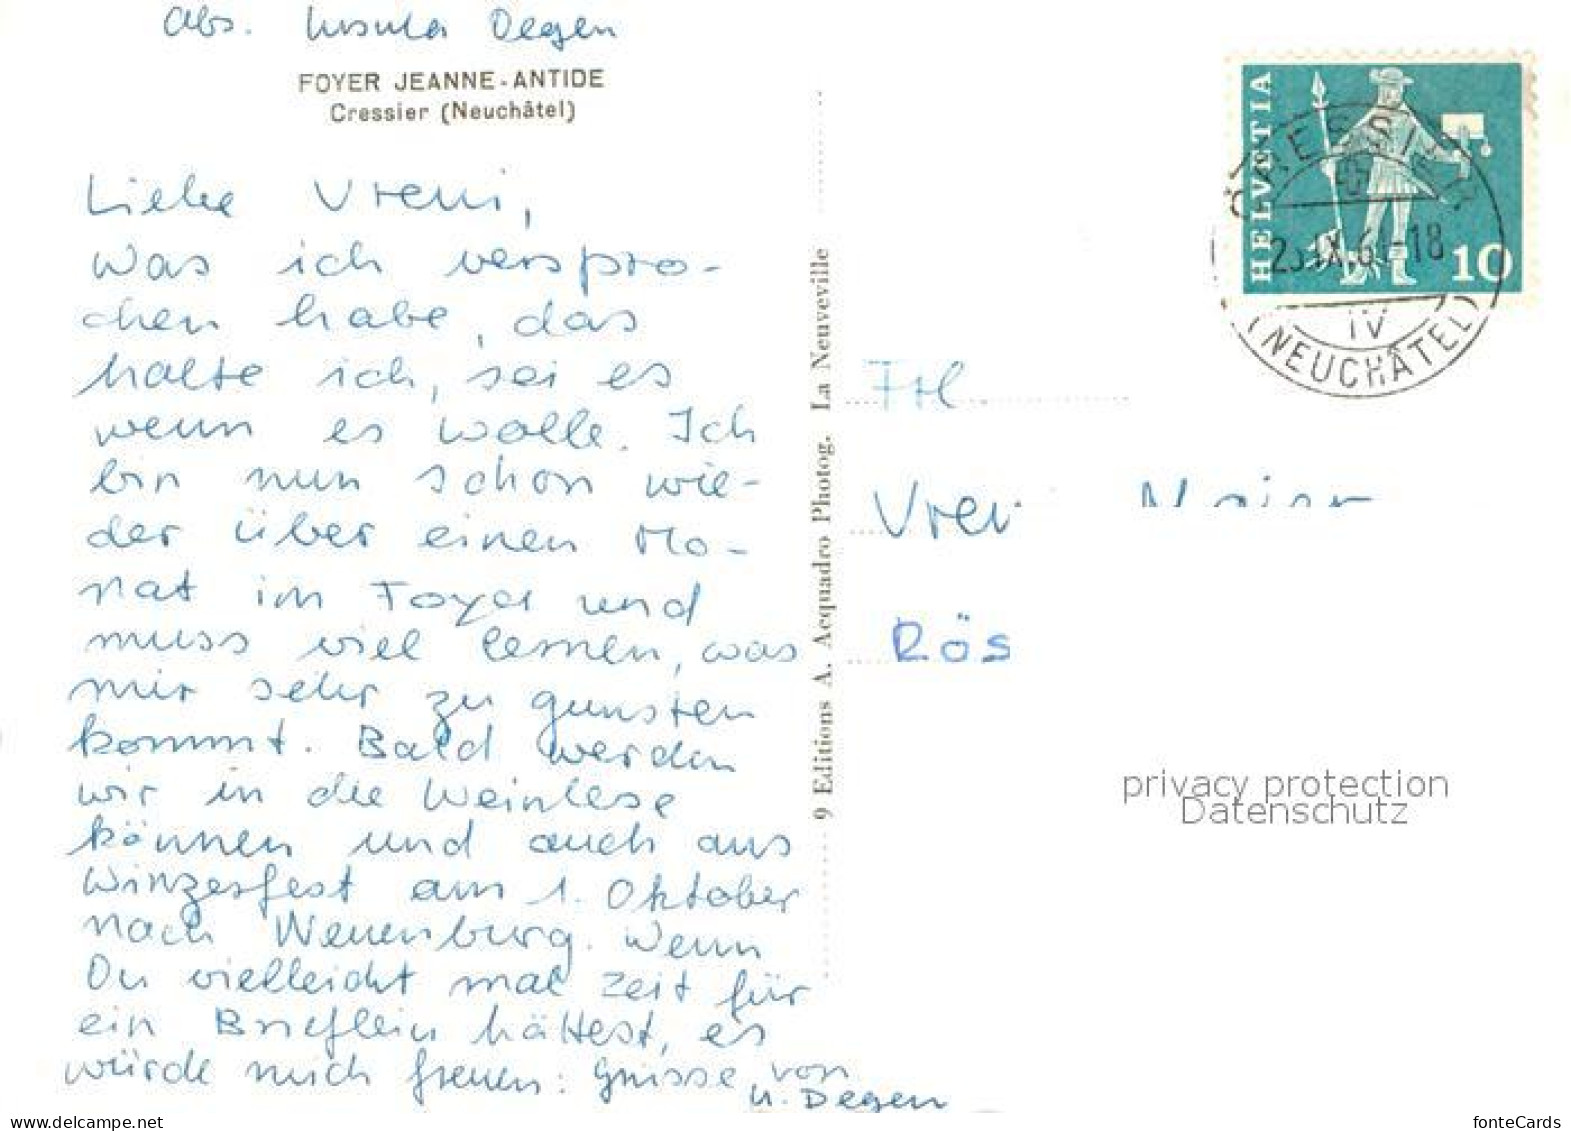 Abs. Ursula Degen
FOYER JEANNE-ANTIDE
Cressier (Neuchâtel)
Liebe Vreni,
was ich verspro-
chen habe, das
halte ich, sei es
wenn es wolle. Ich
bin nun schon wie-
der über einen Mo-
nat im Foyer und
muss viel lernen, was
mir sehr zu gunsten
kommt. Bald werden
wir in die Weinlese
können und auch ans
Winzerfest am 1. Oktober
nach Neuenburg. Wenn
Du vielleicht mal Zeit für
ein Brieflein hättest, es
würde mich freuen: Grüsse von
U. Degen
9 Editions A. Acquadro Photog. La Neuveville
HELVETIA
10
CRESSIER
IX.6 -18
IV
(NEUCHÂTEL)
Frl.
Vreni
Rös
privacy protection
Datenschutz
www.delcampe.net
fonteCards